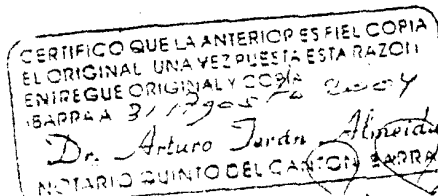 CERTIFICO QUE LA ANTERIOR ES FIEL COPIA
EL ORIGINAL UNA VEZ PUESTA ESTA RAZON
ENTREGUE ORIGINAL Y COPIA
IBARRA A 31 Agosto 2004
Dr. Arturo Terán Almeida
NOTARIO QUINTO DEL CANTON IBARRA